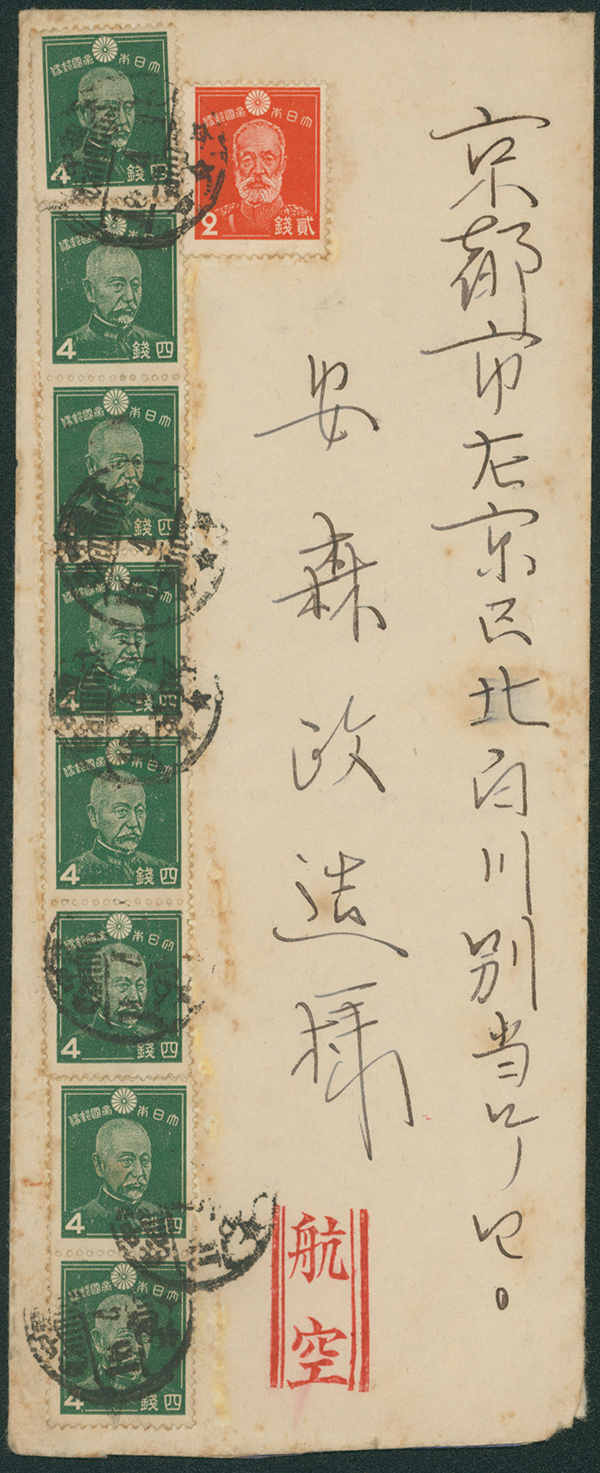 京都市左京区北白川別当町
安森政造様
航空
大日本帝國郵便
貳錢
2
大日本帝國郵便
四錢
4
大日本帝國郵便
四錢
4
大日本帝國郵便
四錢
大日本帝國郵便
四錢
4
大日本帝國郵便
四錢
4
大日本帝國郵便
四錢
4
大日本帝國郵便
四錢
4
大日本帝國郵便
四錢
4